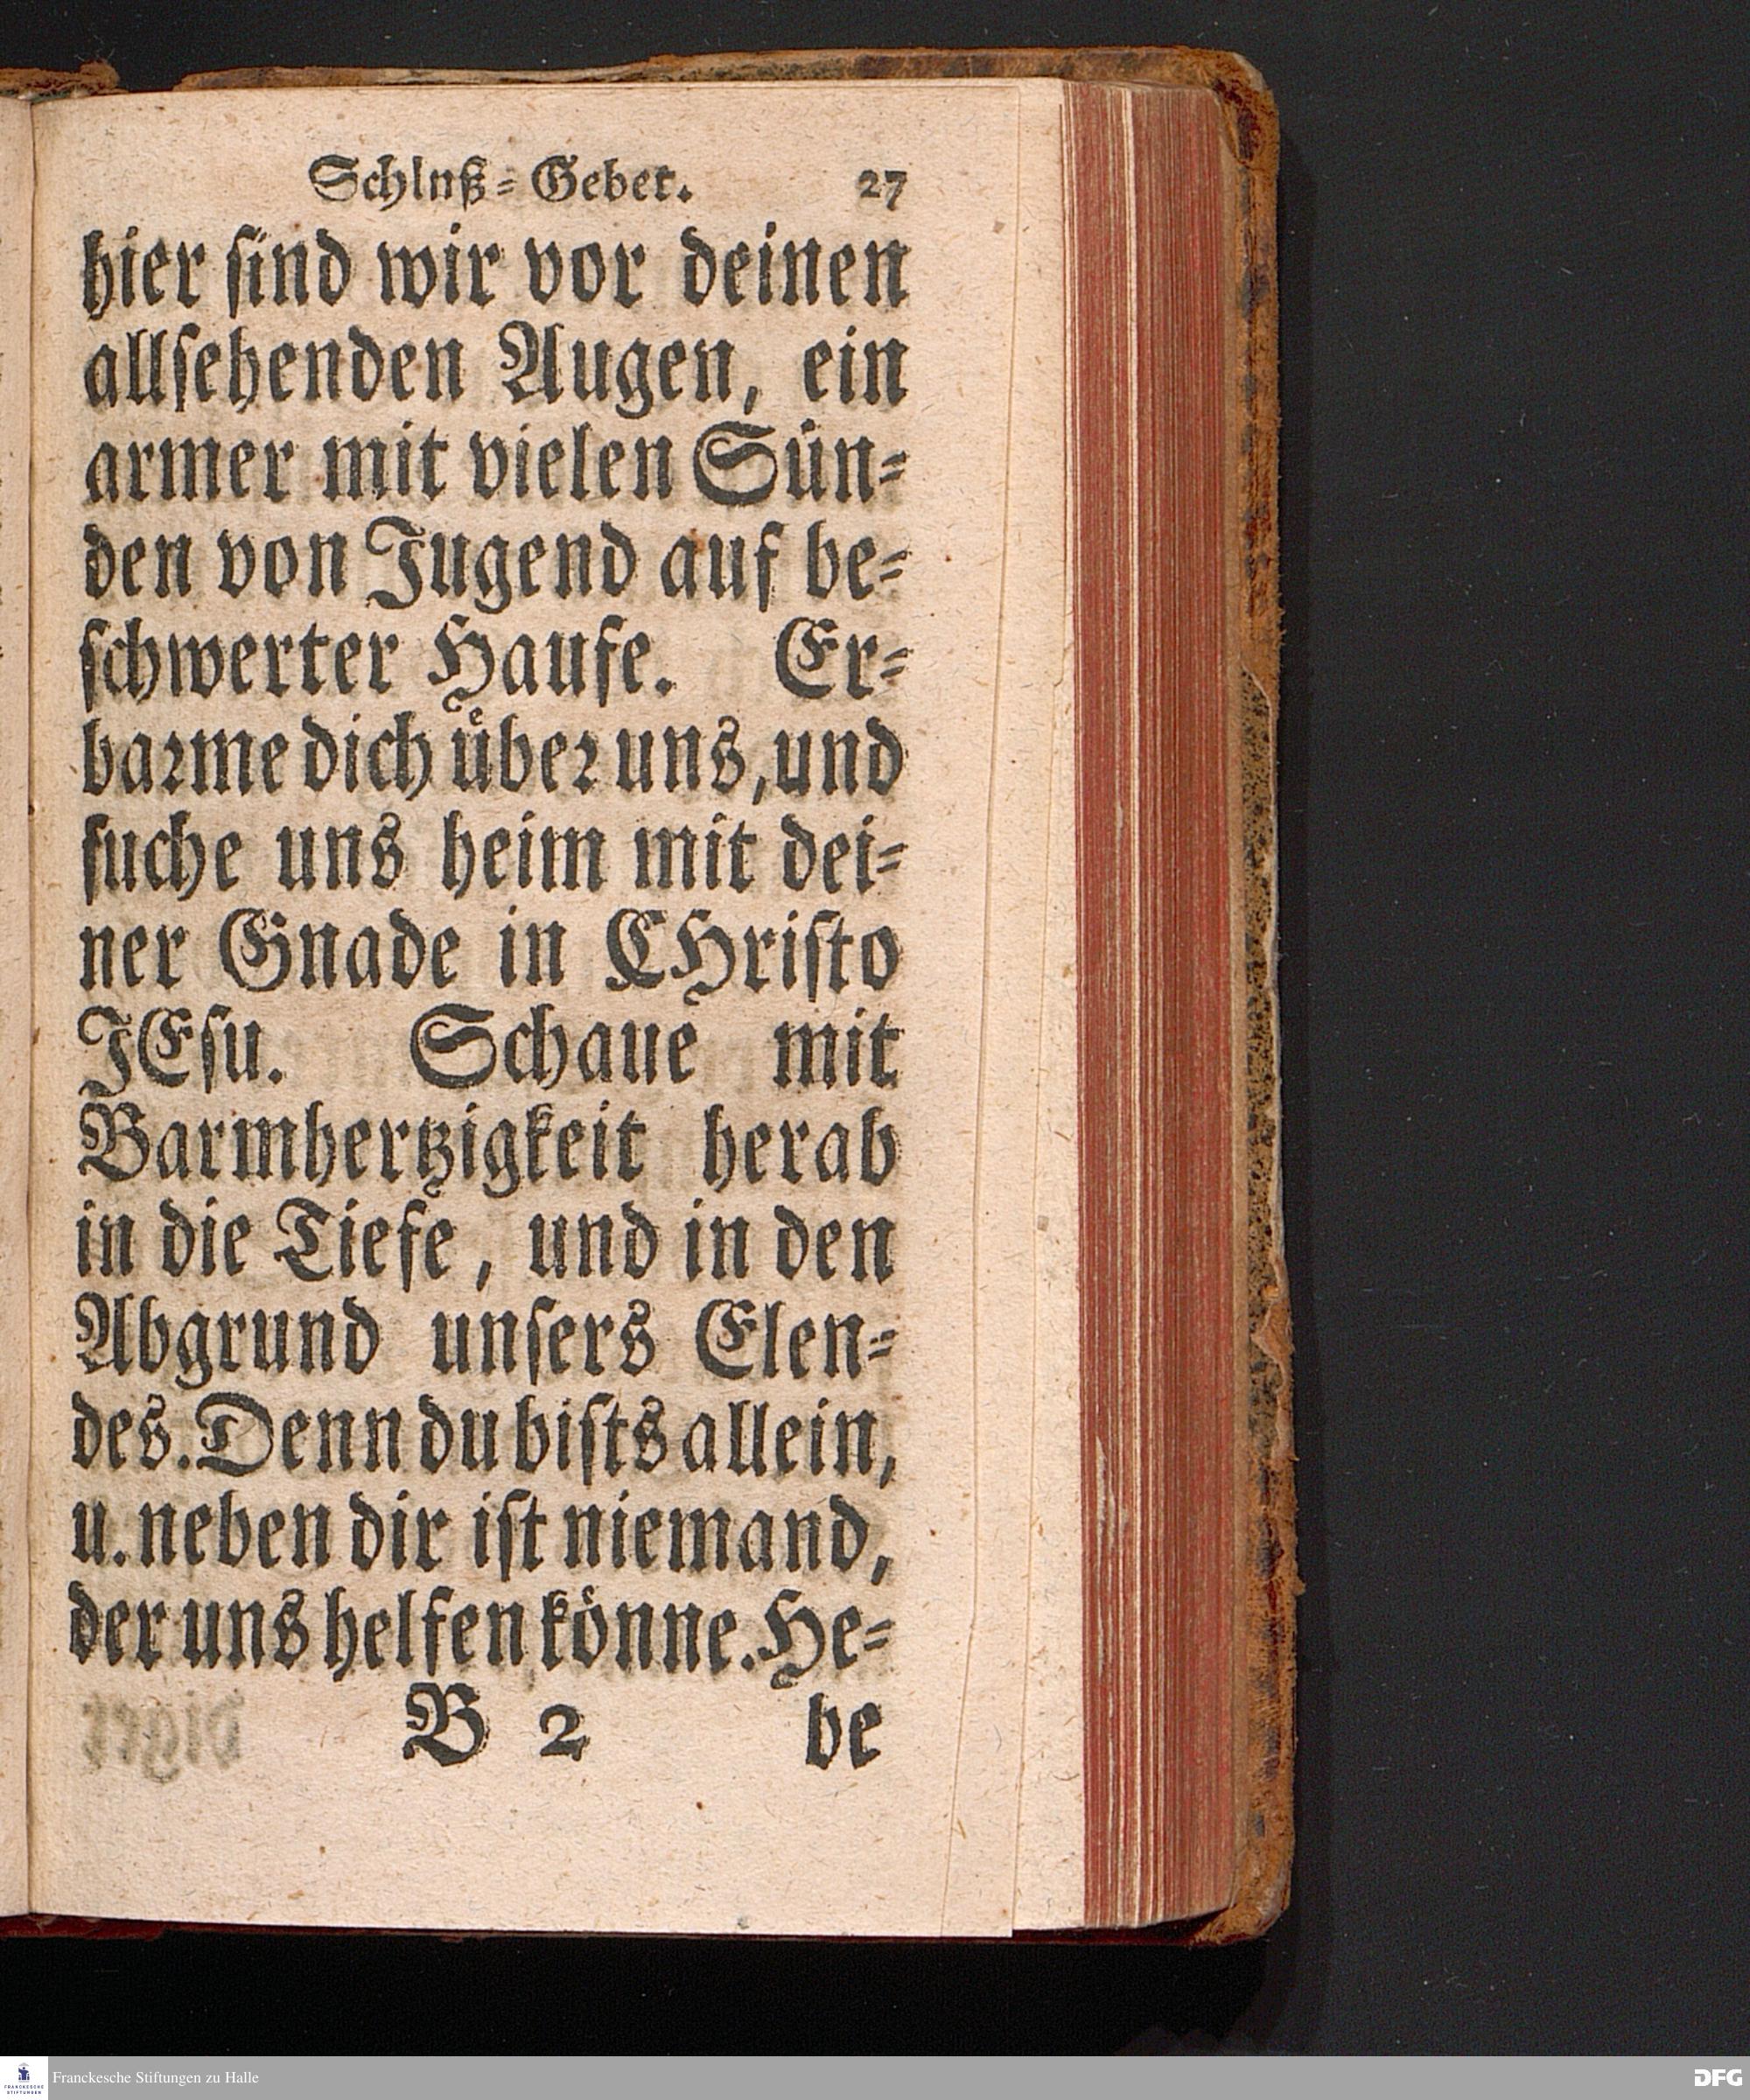 Schlnß-Gebet. 27
hier sind wir vor deinen
allsehenden Augen, ein
armer mit vielen Sün-
den von Jugend auf be-
schwerter Haufe. Er-
barme dich über uns, und
suche uns heim mit dei-
ner Gnade in CHristo
JEsu. Schaue mit
Barmhertzigkeit herab
in die Tiefe, und in den
Abgrund unsers Elen-
des. Denn du bists allein,
u. neben dir ist niemand,
der uns helfen könne. He-
B 2 be
Franckesche Stiftungen zu Halle
DFG